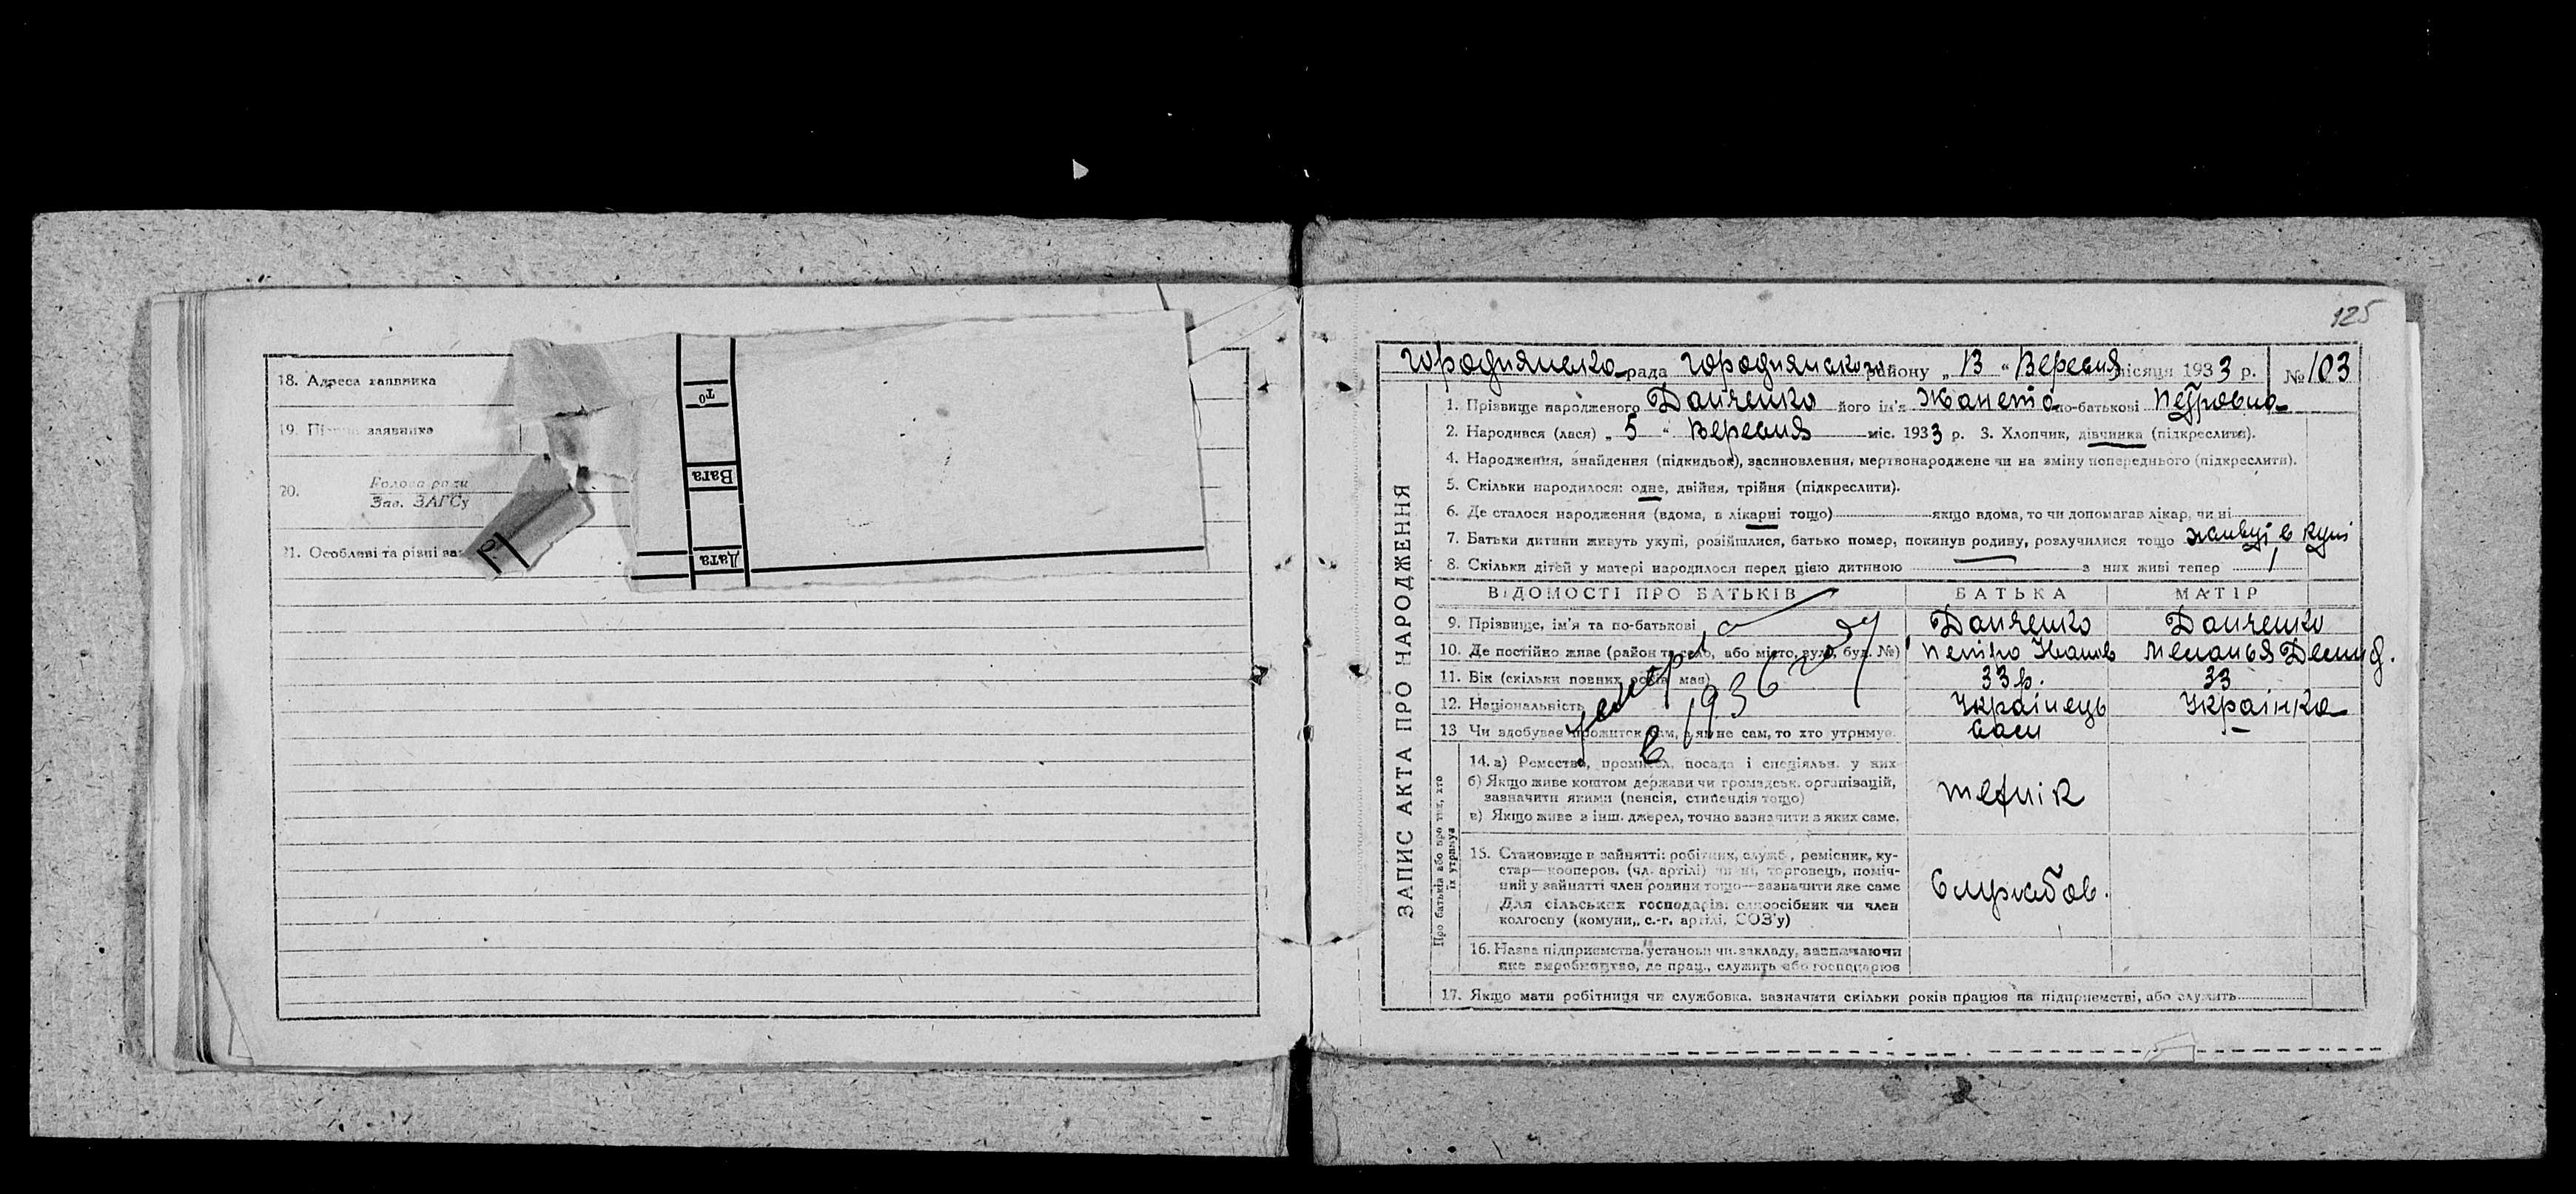 18. Адреса заявника
19. заявника
20. Голова ради
Зав. ЗАГСу
21. Особливі та різні
Т⁰
Вага
Дата
125
Городнянська рада Городнянського району „13“ Вересня місяця 1933 р. № 103
ЗАПИС АКТА ПРО НАРОДЖЕННЯ
1. Прізвище народженого Данченко його ім'я Жанета по-батькові Петровна
2. Народився (лася) „5“ Вересня міс. 1933 р. 3. Хлопчик, дівчинка (підкреслити).
4. Народження, знайдення (підкидьок), засиновлення, мертвонароджене чи на зміну попереднього (підкреслити).
5. Скільки народилося: одне, двійня, трійня (підкреслити).
6. Де сталося народження (вдома, в лікарні тощо) якщо вдома, то чи допомагав лікар, чи ні
7. Батьки дитини живуть укупі, розійшлися, батько помер, покинув родину, розлучилися тощо живуть в купі
8. Скільки дітей у матері народилося перед цією дитиною — з них живі тепер
ВІДОМОСТІ ПРО БАТЬКІВ БАТЬКА МАТІР
9. Прізвище, ім'я та по-батькові Данченко Данченко
10. Де постійно живе (район та село, або місто, вул., буд. №) Петро Іванов Меланья Демид.
11. Вік (скільки повних років має) 33 р. 33
12. Національність Українець Українка
13 Чи здобував прожиток сам, а як не сам, то хто утримує. Сам —
в 1936 году
Про батьків або про тих, хто їх утримує
14. а) Ремество, промисел, посада і спеціяльн. у них
б) Якщо живе коштом держави чи громадськ. організацій,
зазначити якими (пенсія, стипендія тощо)
в) Якщо живе з інш. джерел, точно зазначити з яких саме.
технік
15. Становище в зайнятті: робітник, служб., ремісник, ку-
стар—кооперов. (чл. артілі) чи ні, торговець, поміч-
ний у зайнятті член родини тощо—зазначити яке саме
Для сільських господарів: одноосібник чи член
колгоспу (комуни, с.-г. артілі, СОЗ'у)
Службов.
16. Назва підприємства, установи чи закладу, зазначаючи
яке виробництво, де прац., служить або господарює
17. Якщо мати робітниця чи службовка, зазначити скільки років працює на підприємстві, або служить